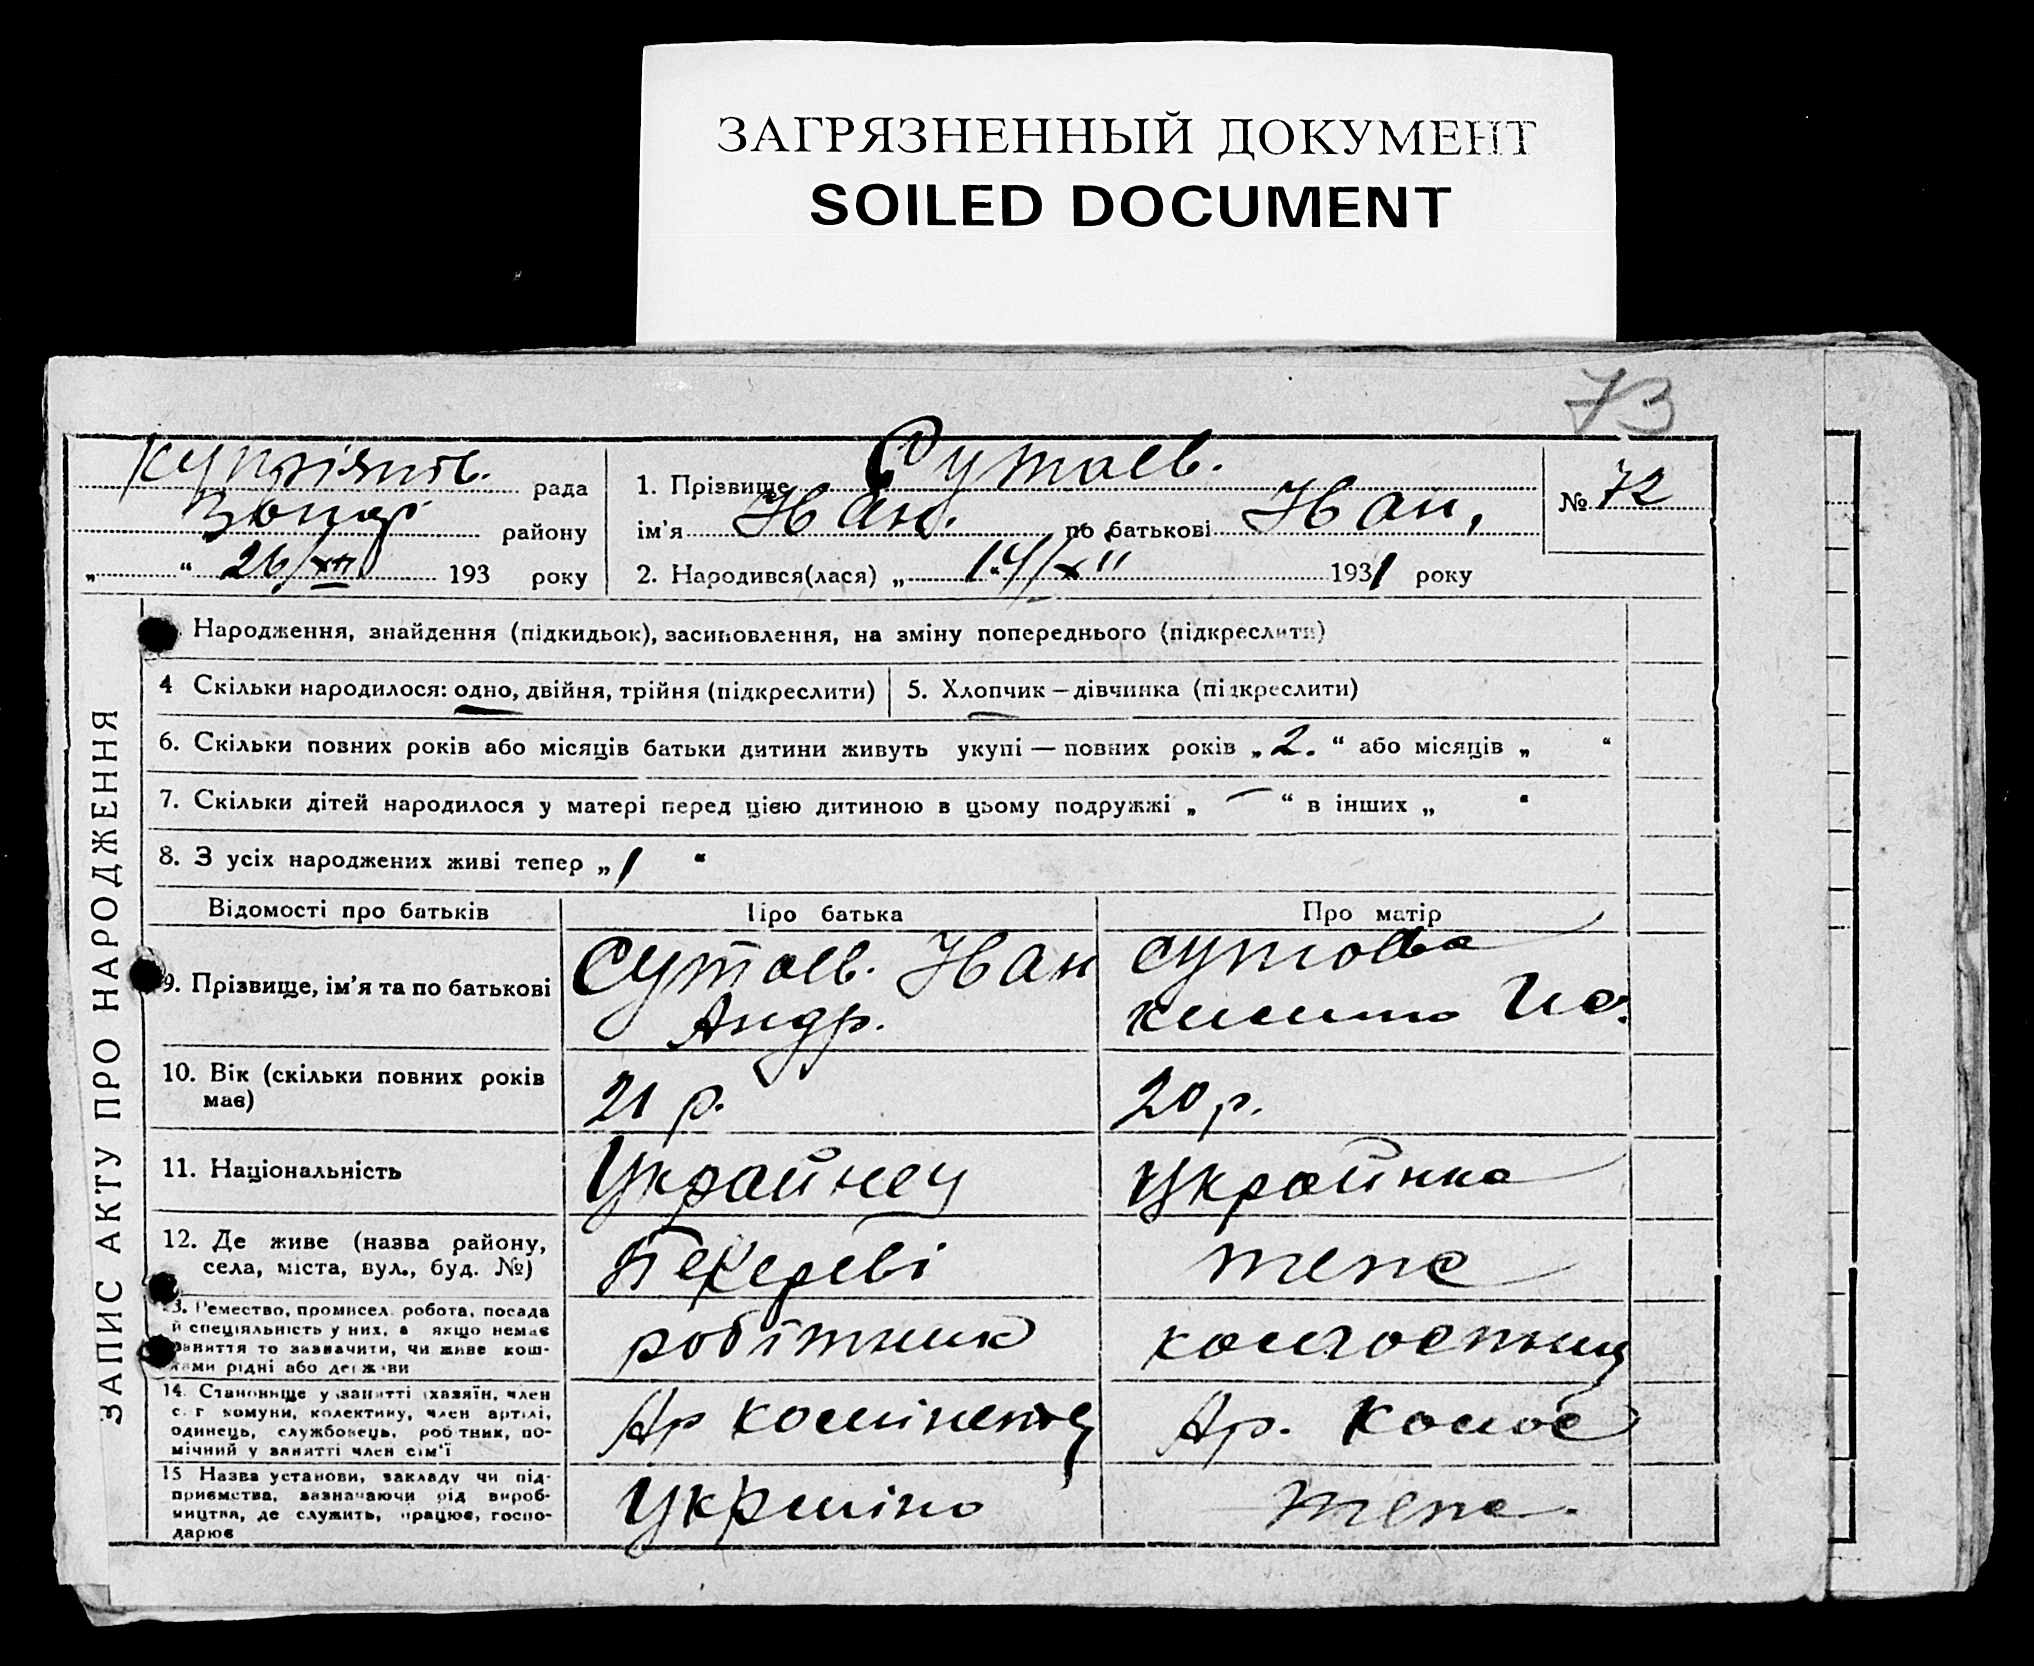 ЗАГРЯЗНЕННЫЙ ДОКУМЕНТ
SOILED DOCUMENT
73
рада
району
„ “ 26/XII 193 року
1. Прізвище Сутаев.
ім’я Иван. по батькові Иван,
2. Народився(лася) „ 14/XII 1931 року
№ 72
ЗАПИС АКТУ ПРО НАРОДЖЕННЯ
Народження, знайдення (підкидьок), засиновлення, на зміну попереднього (підкреслити)
4 Скільки народилося: одно, двійня, трійня (підкреслити)
5. Хлопчик — дівчинка (підкреслити)
6. Скільки повних років або місяців батьки дитини живуть укупі — повних років „ 2. “ або місяців „ “
7. Скільки дітей народилося у матері перед цією дитиною в цьому подружжі „ — “ в інших „ “
8. З усіх народжених живі тепер „ 1 “
Відомості про батьків
Про батька
Про матір
9. Прізвище, ім’я та по батькові
Сутаев. Иван
Андр.
10. Вік (скільки повних років
має)
21 р.
20 р.
11. Національність
Украинец
Украинка
12. Де живе (назва району,
села, міста, вул., буд. №)
13. Ремество, промисел, робота, посада
й спеціяльність у них, а якщо немає
заняття то зазначити, чи живе кош-
тами рідні або держави
робітник
14. Становище у занятті (хазяїн, член
с. г комуни, колективу, член артілі,
одинець, службовець, робітник, по-
мічний у занятті член сім’ї
15 Назва установи, закладу чи під-
приємства, зазначаючи рід вироб-
ництва, де служить, працює, госпо-
дарює